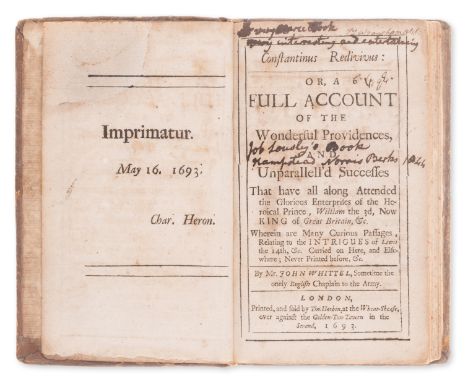 Imprimatur.
May 16. 1693.
Char. Heron.
A very scarce Book
very interesting and entertaining
Constantinus Redivivus:
OR, A
FULL ACCOUNT
OF THE
Wonderful Providences,
Job Lousley's Book
AND
Hampstead Norris Berks
Unparallell'd Successes
That have all along Attended
the Glorious Enterprises of the He-
roical Prince, William the 3d, Now
KING of Great Britain, &c.
Wherein are Many Curious Passages,
Relating to the INTRIGUES of Lewis
the 14th, &c. Carried on Here, and Else-
where; Never Printed before, &c.
By Mr. JOHN WHITTEL, Sometime the
onely English Chaplain to the Army.
LONDON,
Printed, and sold by Tho. Harbon, at the Wheat-Sheafe,
over against the Golden-Tun Tavern in the
Strand, 1693.